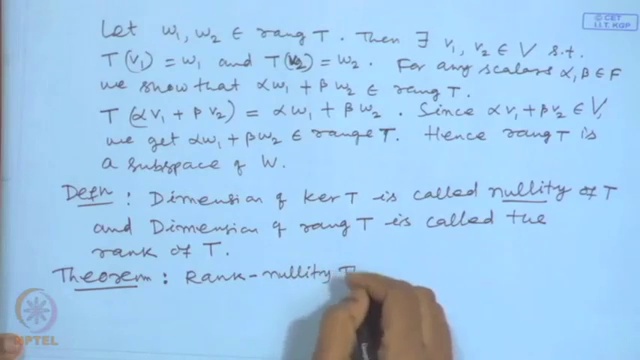 © CET
I.I.T. KGP
Let w₁, w₂ ∈ rang T. Then ∃ v₁, v₂ ∈ V s.t.
T(v₁) = w₁ and T(v₂) = w₂. For any scalars α, β ∈ F
we show that αw₁ + βw₂ ∈ rang T.
T(αv₁ + βv₂) = αw₁ + βw₂. Since αv₁ + βv₂ ∈ V,
we get αw₁ + βw₂ ∈ range T. Hence rang T is
a subspace of W.
Defn : Dimension of ker T is called nullity of T
and Dimension of rang T is called the
rank of T.
Theorem : Rank-nullity T
NPTEL